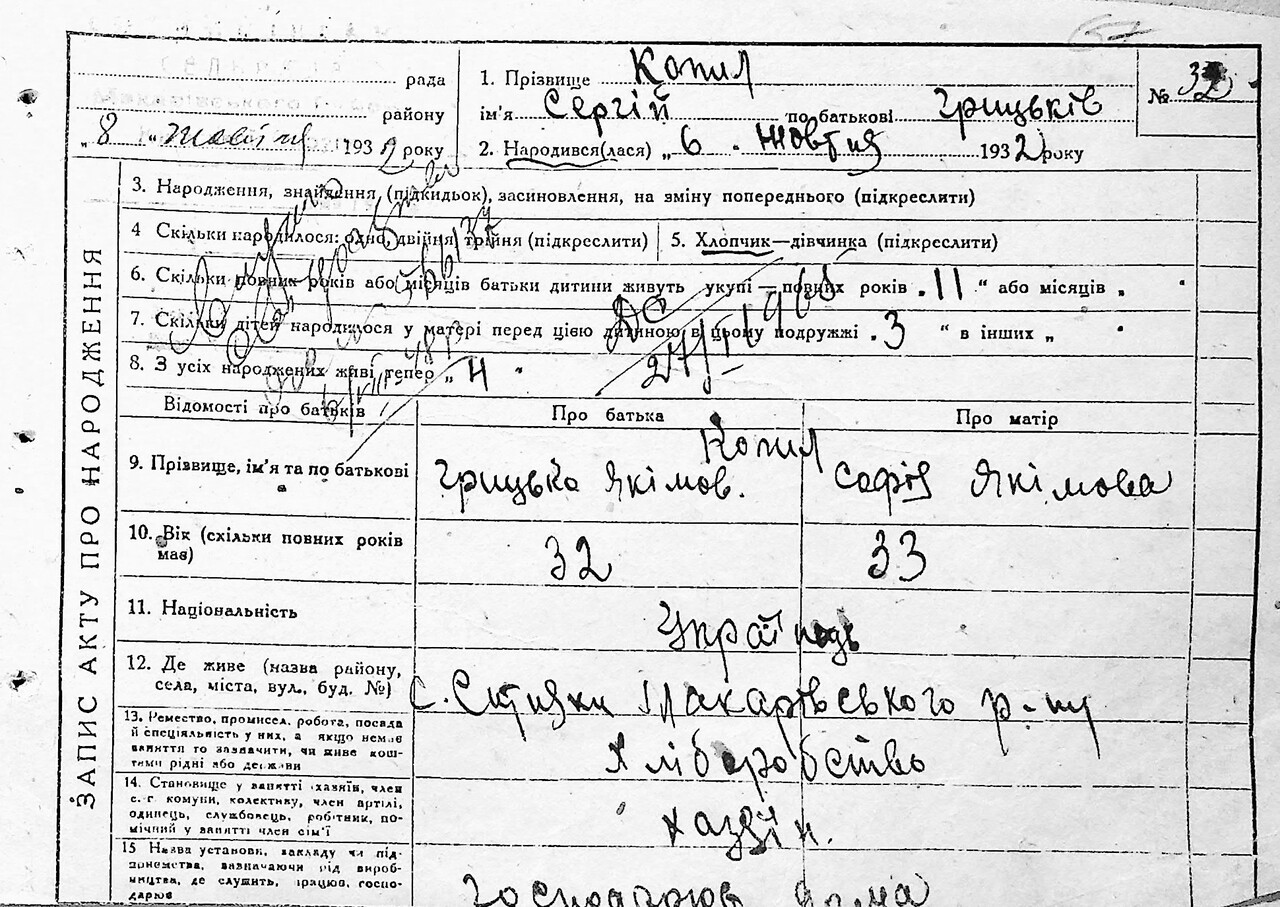 рада
району
„8 „ Жовтня 1932 року
1. Прізвище Копил
ім'я Сергій по батькові Грицьків
2. Народився(лася) „ 6 . Жовтня 1932 року
№ 32
ЗАПИС АКТУ ПРО НАРОДЖЕННЯ
3. Народження, знайдення, (підкидьок), засиновлення, на зміну попереднього (підкреслити)
4 Скільки народилося: одно, двійня, трійня (підкреслити)
5. Хлопчик—дівчинка (підкреслити)
6. Скільки повних років або місяців батьки дитини живуть укупі — повних років „ 11 “ або місяців „ “
7. Скільки дітей народилося у матері перед цією дитиною в цьому подружжі „ 3 “ в інших „ “
8. З усіх народжених живі тепер „ 4 “
Відомості про батьків
Про батька
Про матір
9. Прізвище, ім'я та по батькові
Копил
Грицько Якімов.
Софія Якімова
10. Вік (скільки повних років
має)
32
33
11. Національність
Україн
12. Де живе (назва району,
села, міста, вул., буд. №)
с. Ситняки Макарівського р-ну
13. Ремество, промисел, робота, посада
й спеціяльність у них, а якщо немає
заняття то зазначити, чи живе кош-
тами рідні або держави
Хліборобство
14. Становище у занятті (хазяїн, член
с.-г. комуни, колективу, член артілі,
одинець, службовець, робітник, по-
мічний у занятті член сім'ї
хазяїн.
15 Назва установи, закладу чи під-
приємства, зазначаючи рід вироб-
ництва, де служить, працює, госпо-
дарює
Господарює дома